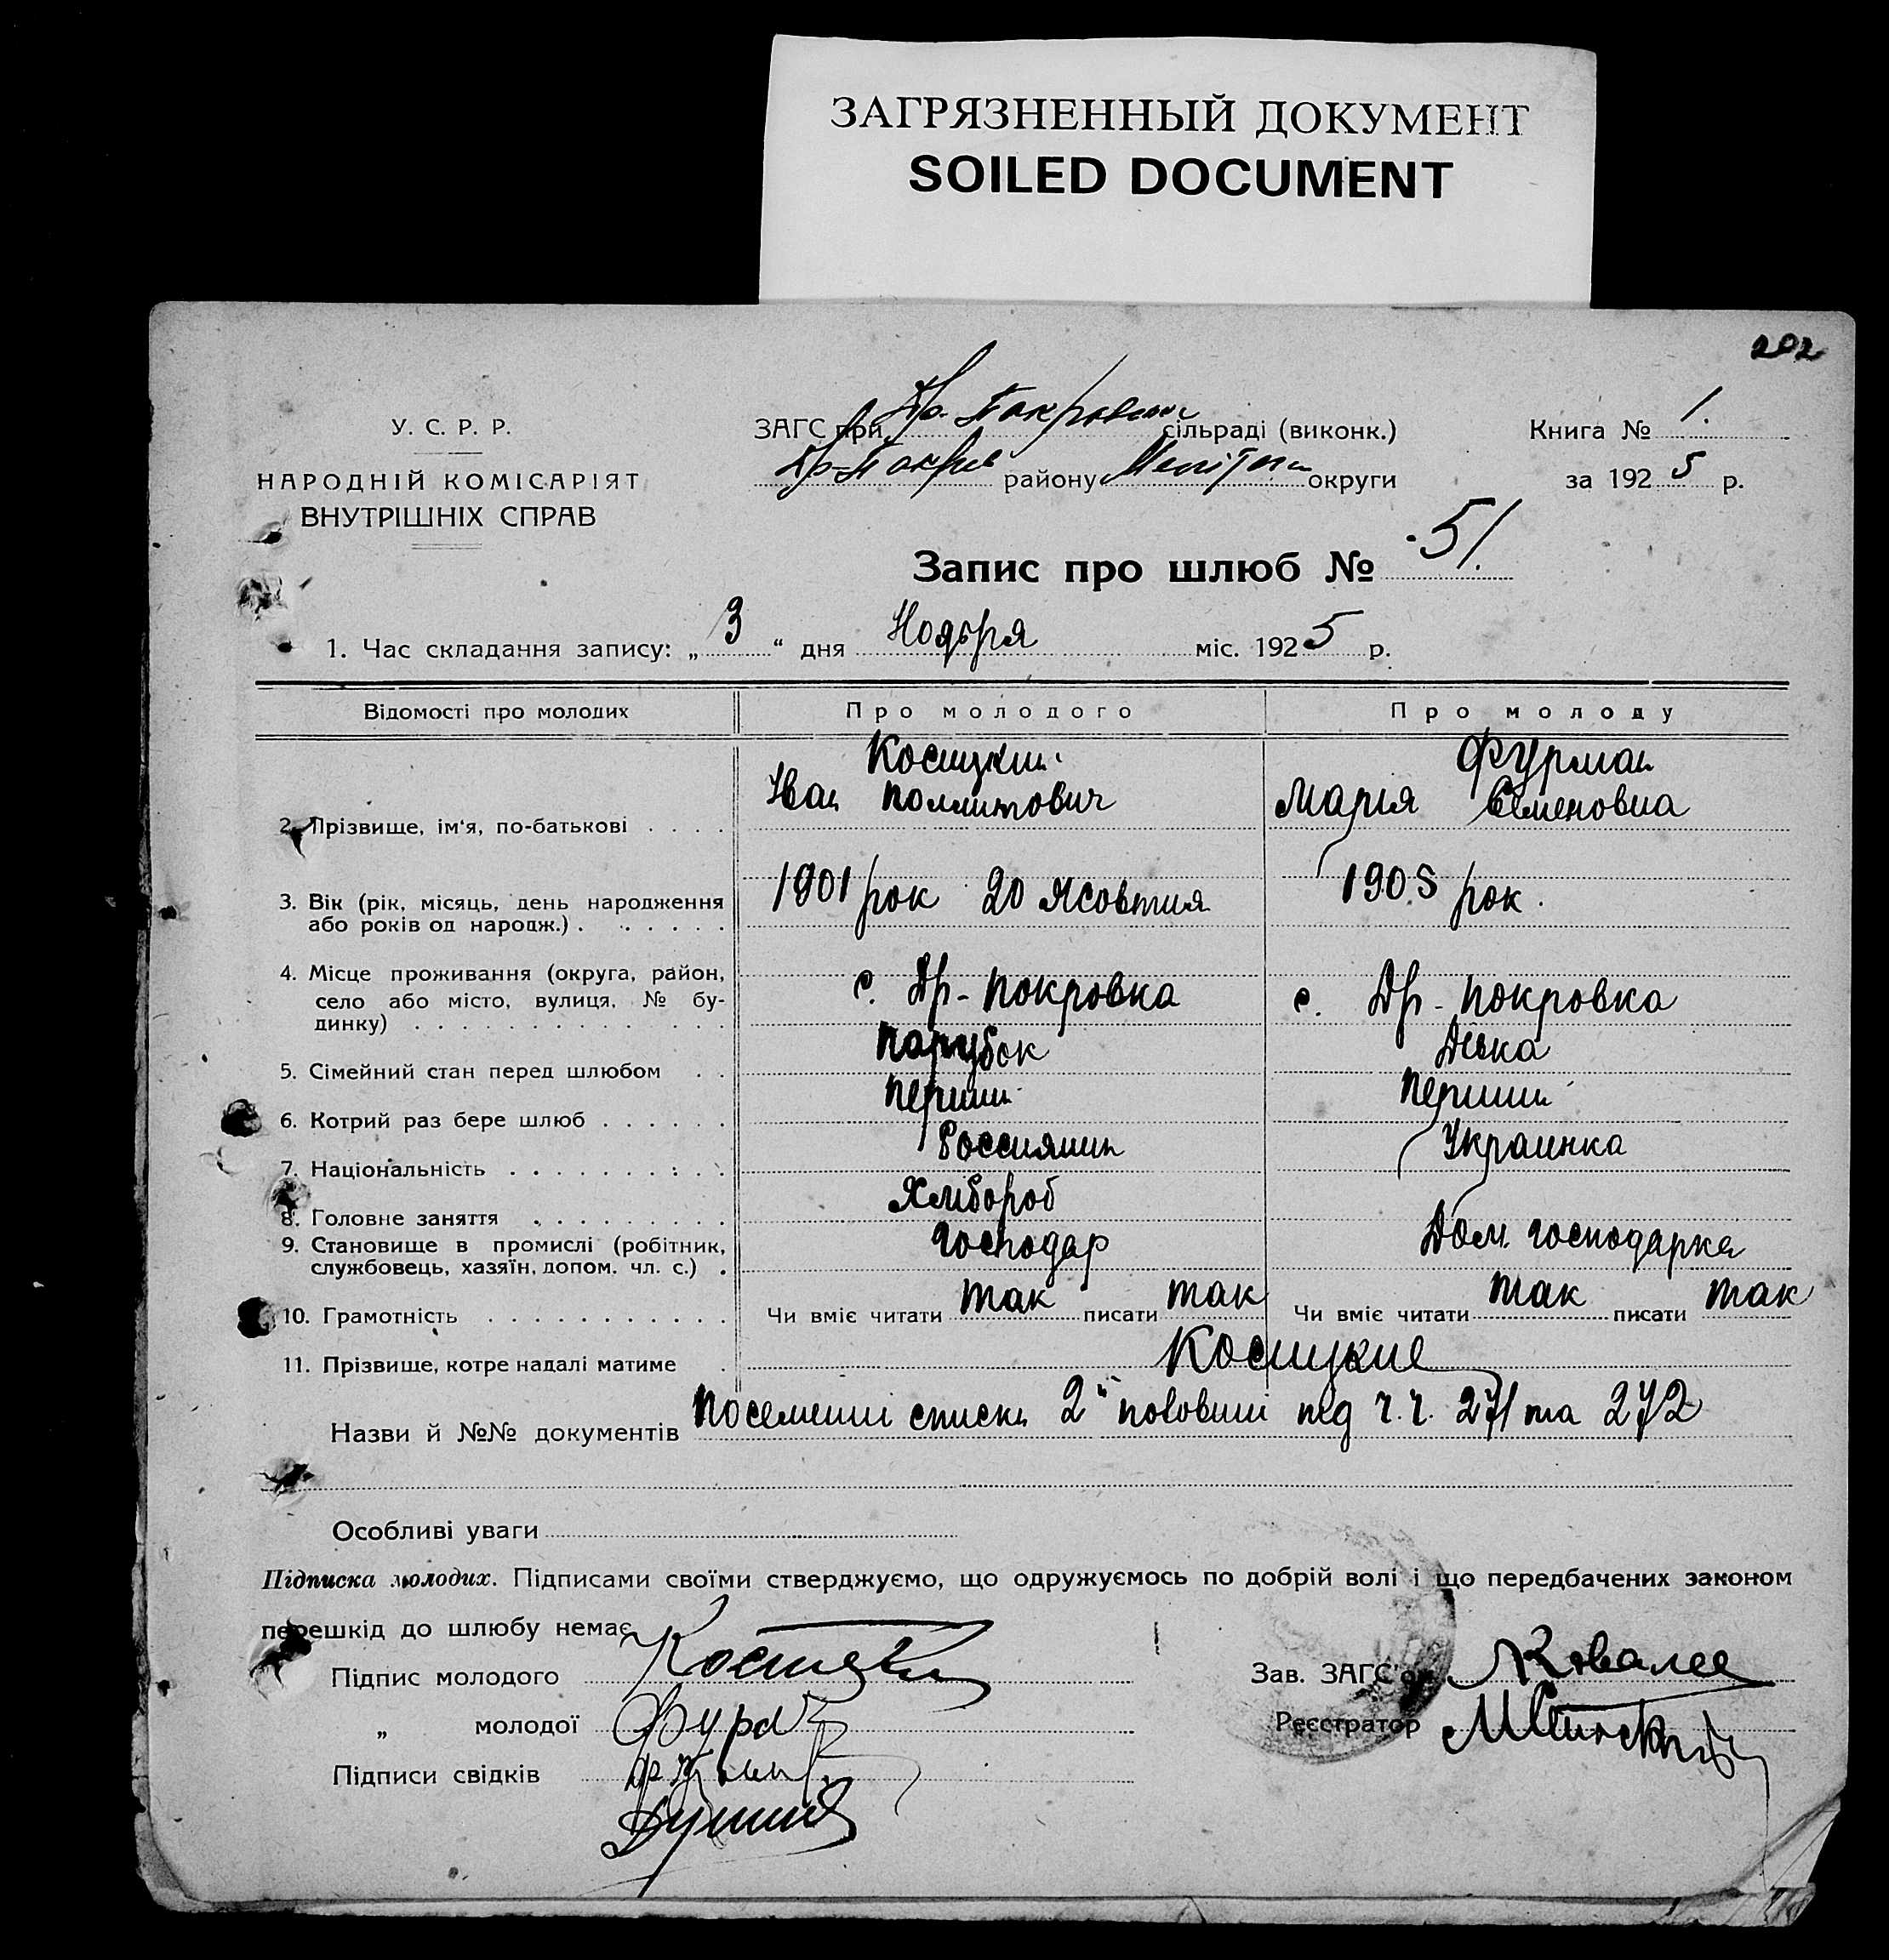 ЗАГРЯЗНЕННЫЙ ДОКУМЕНТ
SOILED DOCUMENT
202
У. С. Р. Р.
НАРОДНІЙ КОМІСАРІЯТ
ВНУТРІШНІХ СПРАВ
ЗАГС при Др. Покровськ сільраді (виконк.)
Др-Покров району Меліт округи
Книга № 1.
за 1925 р.
Запис про шлюб № 51.
1. Час складання запису: „3“ дня Ноября міс. 1925 р.
Відомості про молодих Про молодого Про молоду
Косицкий Фурман
2. Прізвище, ім'я, по-батькові . . . . Іван Марія Семеновна
3. Вік (рік, місяць, день народження 1901 рок 20 Жовтня 1905 рок.
або років од народж.) . . . . . .
4. Місце проживання (округа, район, с. Др-Покровка с. Др-Покровка
село або місто, вулиця, № бу-
динку) . . . . . . . . . . . . . .
5. Сімейний стан перед шлюбом . . Парубок Девка
6. Котрий раз бере шлюб . . . . . . Перший Перший
7. Національність . . . . . . . . . Россиянин Украинка
8. Головне заняття . . . . . . . . . Хлібороб
9. Становище в промислі (робітник, Господар Дом. господарка
службовець, хазяїн, допом. чл. с.) .
10. Грамотність . . . . . . . . . . . Чи вміє читати так писати так Чи вміє читати так писати так
11. Прізвище, котре надалі матиме . Косицкие
Назви й №№ документів Посемении списки 2й половини під ч.ч. 271 та 272
Особливі уваги
Підписка молодих. Підписами своїми стверджуємо, що одружуємось по добрій волі і що передбачених законом
перешкід до шлюбу немає
Підпис молодого
Зав. ЗАГС'ом
„ молодої
Реєстратор
Підписи свідків